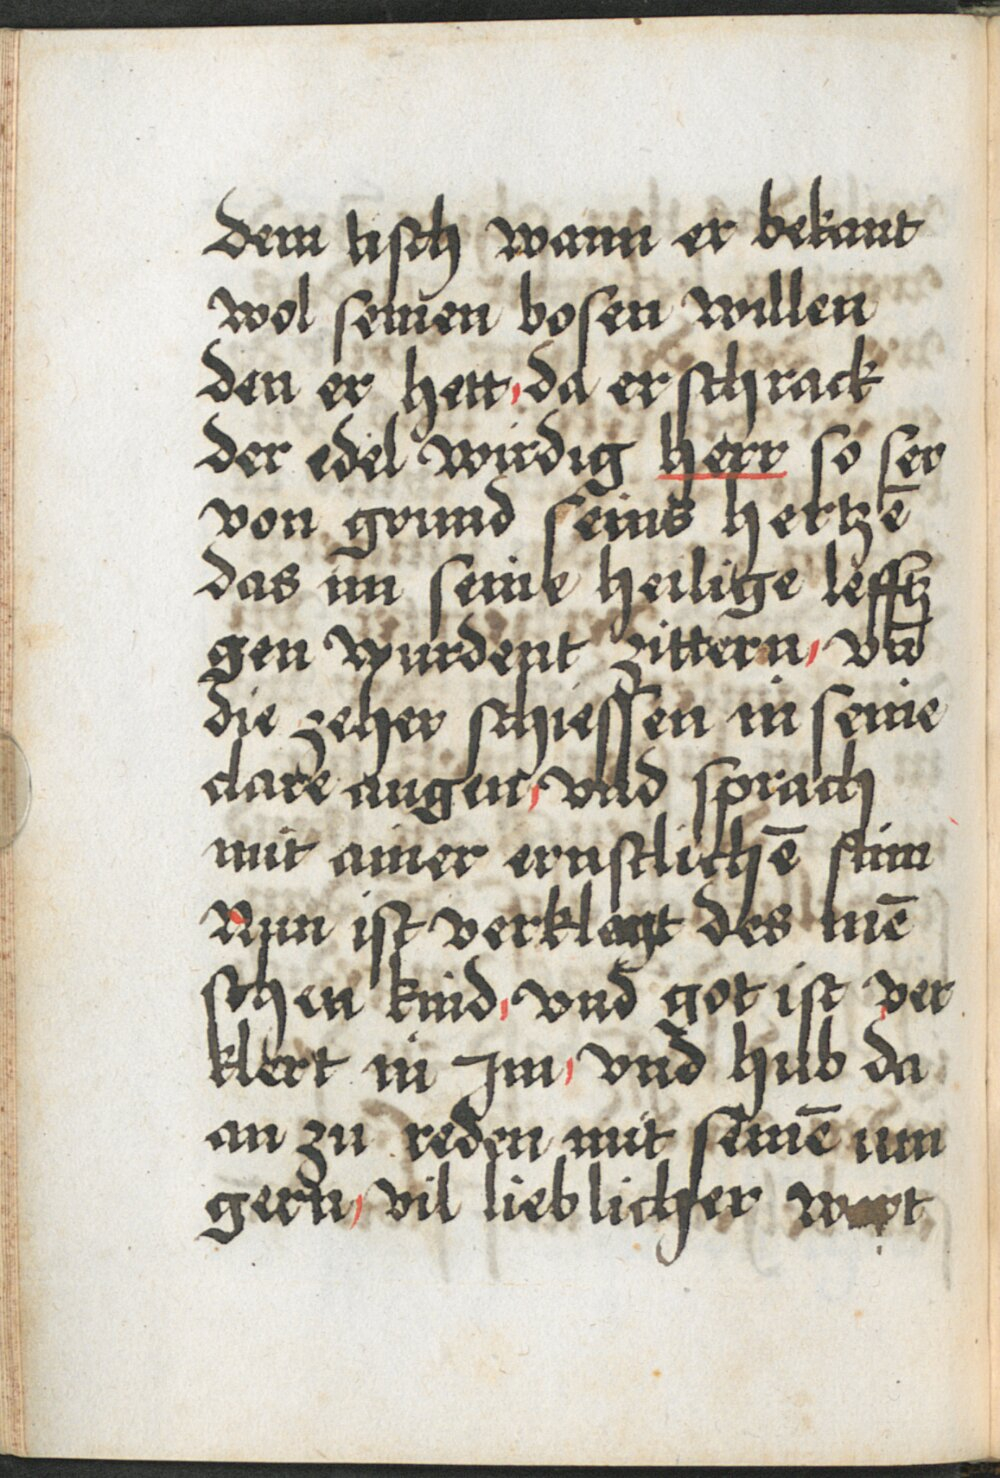 dem tisch wann er bekant
wol seinen bosen willen
den er hett, da erschrack
der edel wirdig herr so ser
von grund seins hertzē
das im seine heilige lefftz
gen wurdent zittern, vnd
die zeher schiessen in seine
clare augen, vnd sprach
mit ainer ernstlichē stim
Nun ist verklagt des mē
schen kind, vnd got ist ver
klert in Im, vnd hub da
an zu reden mit seinē iun
gern, vil lieblicher wort